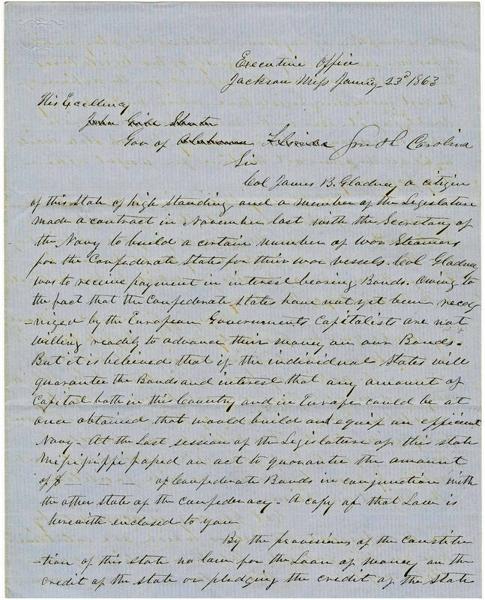 Executive Office
Jackson Miss Januy 23d 1863
His Excellency
John Gill Shorter
Gov of Alabama Florida South Carolina
Sir
Col James B. Gladney a citizen
of this State of high standing and a member of the Legislature
made a contract in November last with the Secretary of
the Navy to build a certain number of war Steamers
for the Confederate States for their war vessels. Col Gladney
was to receive payment in interest bearing Bonds. Owing to
the fact that the Confederate States have not yet been recog
-nized by the European Governments Capitalists are not
willing readily to advance their money on our Bonds.
But it is believed that if the individual States will
guarantee the Bonds and interest that any amount of
Capital both in this Country and in Europe could be at
once obtained that would build and equip an efficient
Navy. At the last session of the Legislature of this state
Mississippi passed an act to guarantee the amount
of $ of Confederate Bonds in conjunction with
the other State of the Confederacy. A copy of that Law is
herewith enclosed to you
By the provisions of the Constitu
-tion of this state no law for the Loan of money on the
credit of the state or pledging the credit of the state